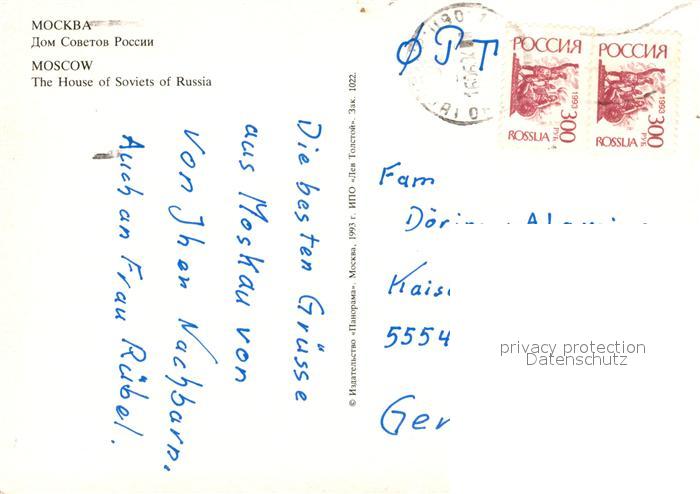 МОСКВА
Дом Советов России
MOSCOW
The House of Soviets of Russia
Die besten Grüsse
aus Moskau von
Von Jhon Nachbarn.
Auch an Frau Rübel.
© Издательство «Панорама». Москва, 1993 г. ИПО «Лев Толстой». Зак. 1022.
ФРГ
РОССИЯ
1993
300
РУБ
ROSSIJA
РОССИЯ
1993
300
РУБ
ROSSIJA
Fam
5554
privacy protection
Datenschutz